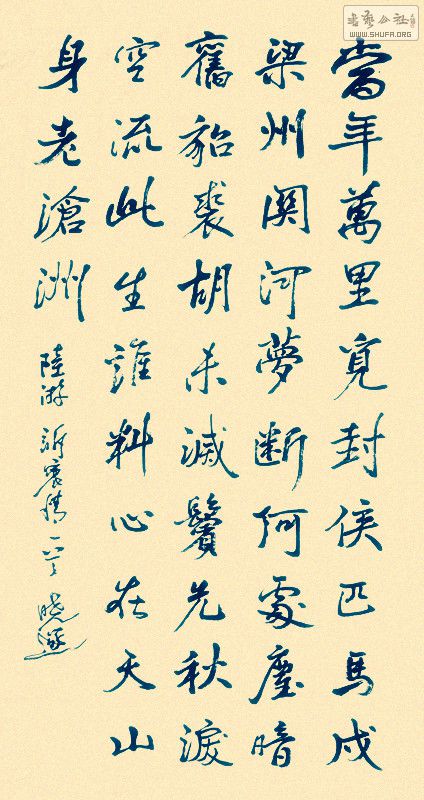 當年萬里覓封侯匹馬戍
梁州關河夢斷何處塵暗
舊貂裘胡未滅鬢先秋淚
空流此生誰料心在天山
身老滄洲
陸游 訴衷情
WWW.SHUFA.ORG